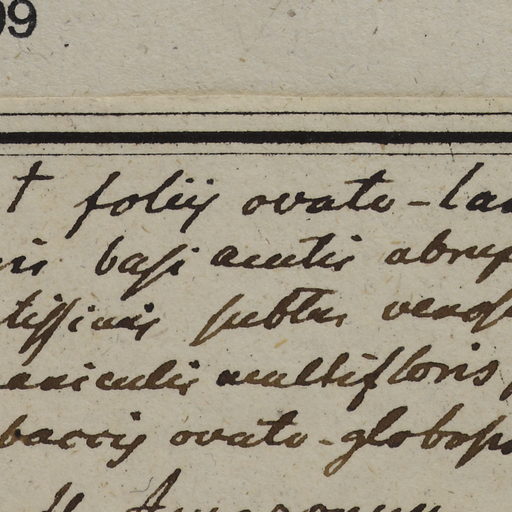 09
† foliis ovato-lan
basi acutis abrup
tissimis subtus venos
aniculis multifloris
baccis ovato-globos